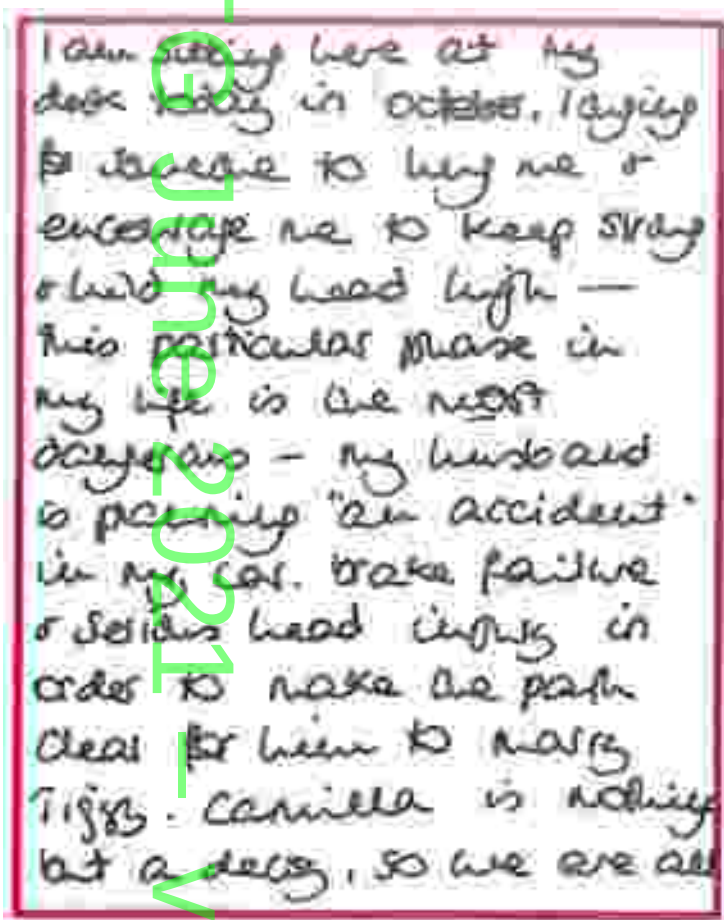 I am sitting here at my
desk today in october, longing
for someone to hug me &
encourage me to keep strong
& hold my head high —
this particular phase in
my life is the most
dangerous – my husband
is planning "an accident"
in my car. brake failure
& serious head injury in
order to make the path
clear for him to marry
Tiggy. Camilla is nothing
but a decoy, so we are all
G June 2021 – v